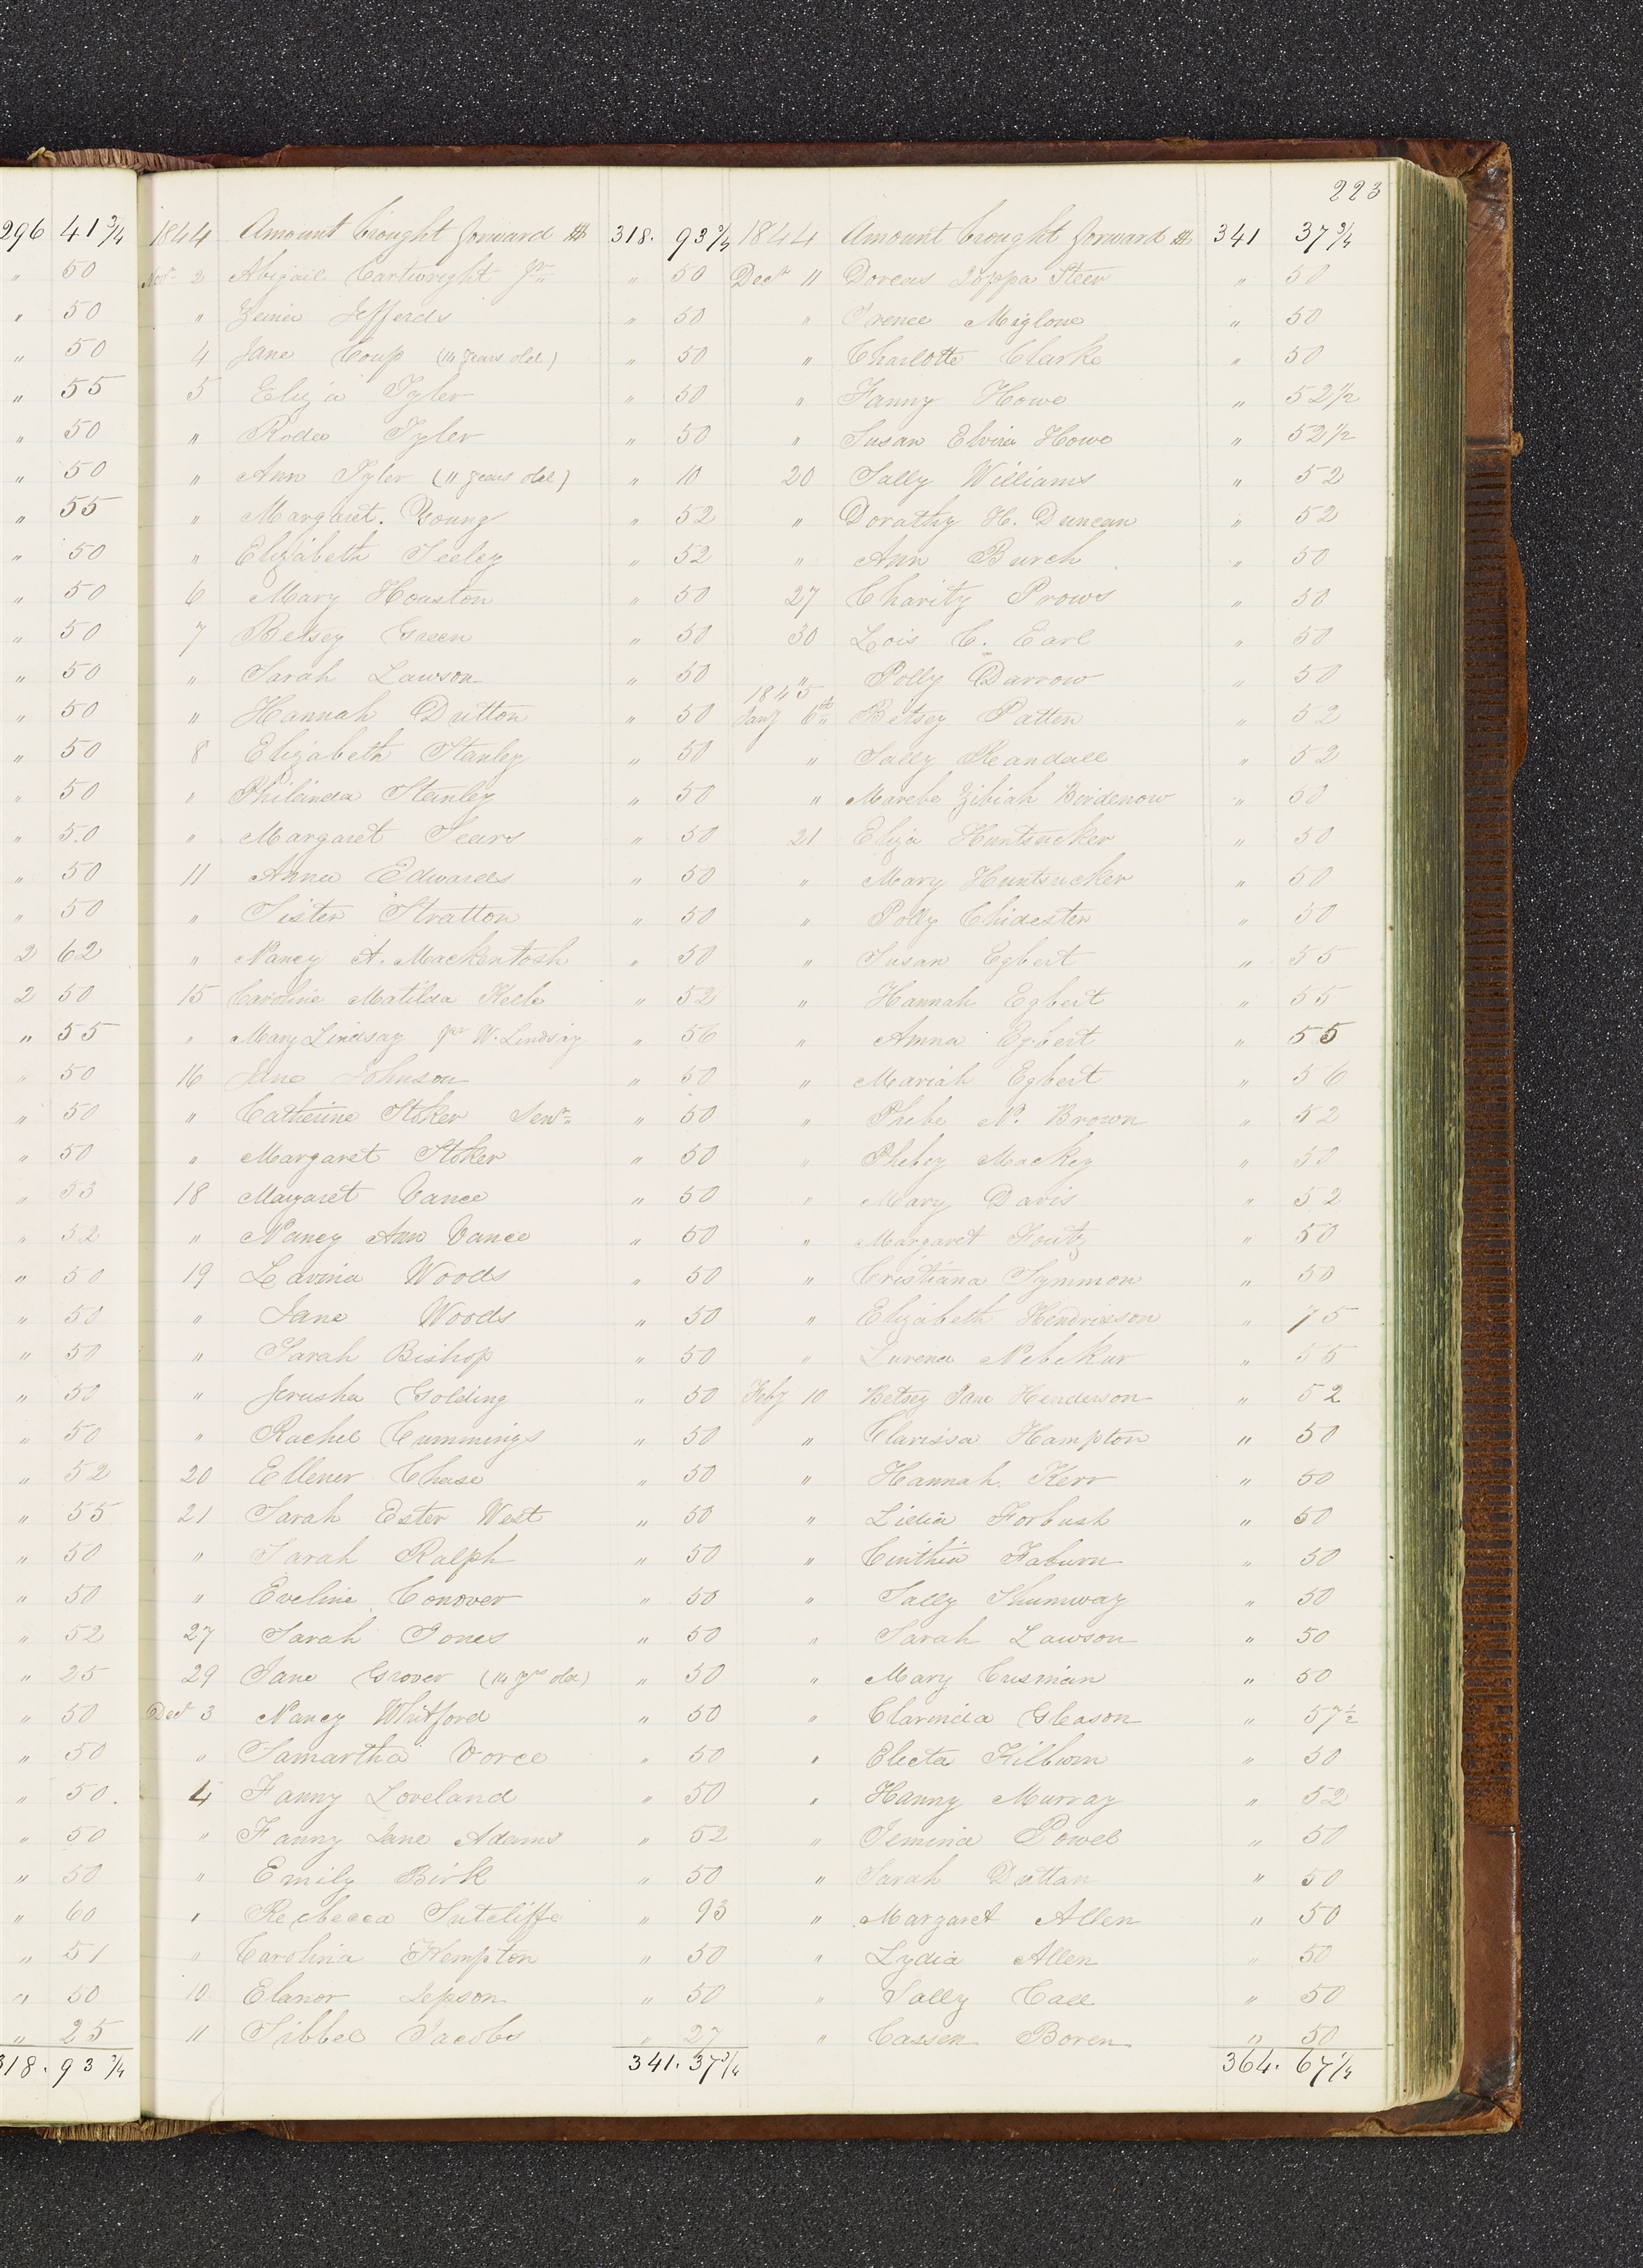 223
296 41 3/4
" 50
" 50
" 50
" 55
" 50
" 50
" 55
" 50
" 50
" 50
" 50
" 50
" 50
" 50
" 50
" 50
" 50
2 62
2 50
" 55
" 50
" 50
" 50
" 53
" 52
" 50
" 50
" 50
" 50
" 50
" 52
" 55
" 50
" 50
" 52
" 25
" 50
" 50
" 50.
" 50
" 50
" 60
" 51
" 50
" 25
318. 93 3/4
1844 Amount brought forward $ 318. 93 3/4
Novr 2 Abigail Cartwright jr " 50
" Jefferds " 50
4 Jane Coup (14 years old) " 50
5 Eliza Tyler " 50
" Roda Tyler " 50
" Ann Tyler (11 years old) " 10
" Margaret. Young " 52
" Elizabeth Seeley " 52
6 Mary Houston " 50
7 Betsey Green " 50
" Sarah Lawson " 50
" Hannah Dutton " 50
8 Elizabeth Stanley " 50
" Philinda Stanley " 50
" Margaret Sears " 50
11 Anna Edwards " 50
" Sister Stratton " 50
" Nancy A. Mackentosh " 50
15 Caroline Matilda " 52
" Mary Lindsay pr W. Lindsay " 56
16 Jane Johnson " 50
" Catherine Stoker Senr " 50
" Margaret Stoker " 50
18 Margaret Vance " 50
" Nancy Ann Vance " 50
19 Lavina Woods " 50
" Jane Woods " 50
" Sarah Bishop " 50
" Jerusha Golding " 50
" Rachel Cummings " 50
20 Ellener Chase " 50
21 Sarah Ester West " 50
" Sarah Ralph " 50
" Eveline Conover " 50
27 Sarah Jones " 50
29 Jane Grover (14 yrs old) " 50
Decr 3 Nancy Whitford " 50
" Samartha Vorce " 50
4 Fanny Loveland " 50
" Fanny Jane Adams " 52
" Emily Birk " 50
" Rebecca Sutcliffe " 93
" Carolina Kempton " 50
10 Elanor Jepson " 50
11 Sibbel Jacobs " 27
341. 37 3/4
1844 Amount brought forward $ 341 37 3/4
Decr 11 Dorcas Steer " 50
" Irence Miglone " 50
" Charlotte Clarke " 50
" Fanny Howe " 52 1/2
" Susan Elvira Howe " 52 1/2
20 Sally Williams " 52
" Dorathy H. Duncan " 52
" Ann Burch " 50
27 Charity Prows " 50
30 Lois C. Earl " 50
" Polly Darrow " 50
1845
Jany 6th Betsey Patten " 52
" Sally Reandall " 52
" Marebe Zibiah " 50
21 Eliza Huntsucker " 50
" Mary Huntsucker " 50
" Polly Chidester " 50
" Susan Egbert " 55
" Hannah Egbert " 55
" Amna Egbert " 55
" Mariah Egbert " 56
" Phebe N. Brown " 52
" Phebey Mackey " 50
" Mary Davis " 52
" Margaret Foutz " 50
" Cristiana Symmon " 50
" Elizabeth Hendrixson " 75
" Lurena Nebekur " 55
Feby 10 Betsey Jane Henderson " 52
" Clarissa Hampton " 50
" Hannah Kerr " 50
" Lidia Forbush " 50
" Cinthia Faburn " 50
" Sally Shumway " 50
" Sarah Lawson " 50
" Mary Cusman " 50
" Clarinda Gleason " 57 1/2
" Electa Kilburn " 50
" Hanny Murray " 52
" Jemima Powel " 50
" Sarah Duttan " 50
" Margaret Allen " 50
" Lydia Allen " 50
" Sally Call " 50
" Cassen Boren " 50
364. 67 1/4